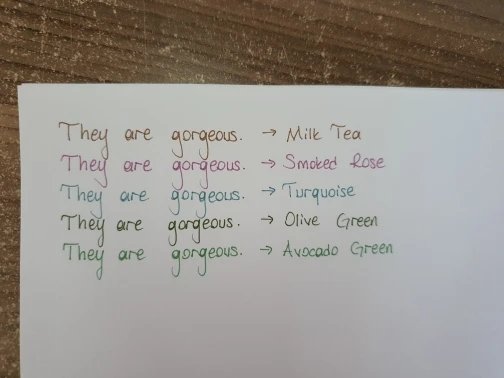 They are gorgeous. → Milk Tea
They are gorgeous. → Smoked Rose
They are gorgeous. → Turquoise
They are gorgeous. → Olive Green
They are gorgeous. → Avocado Green